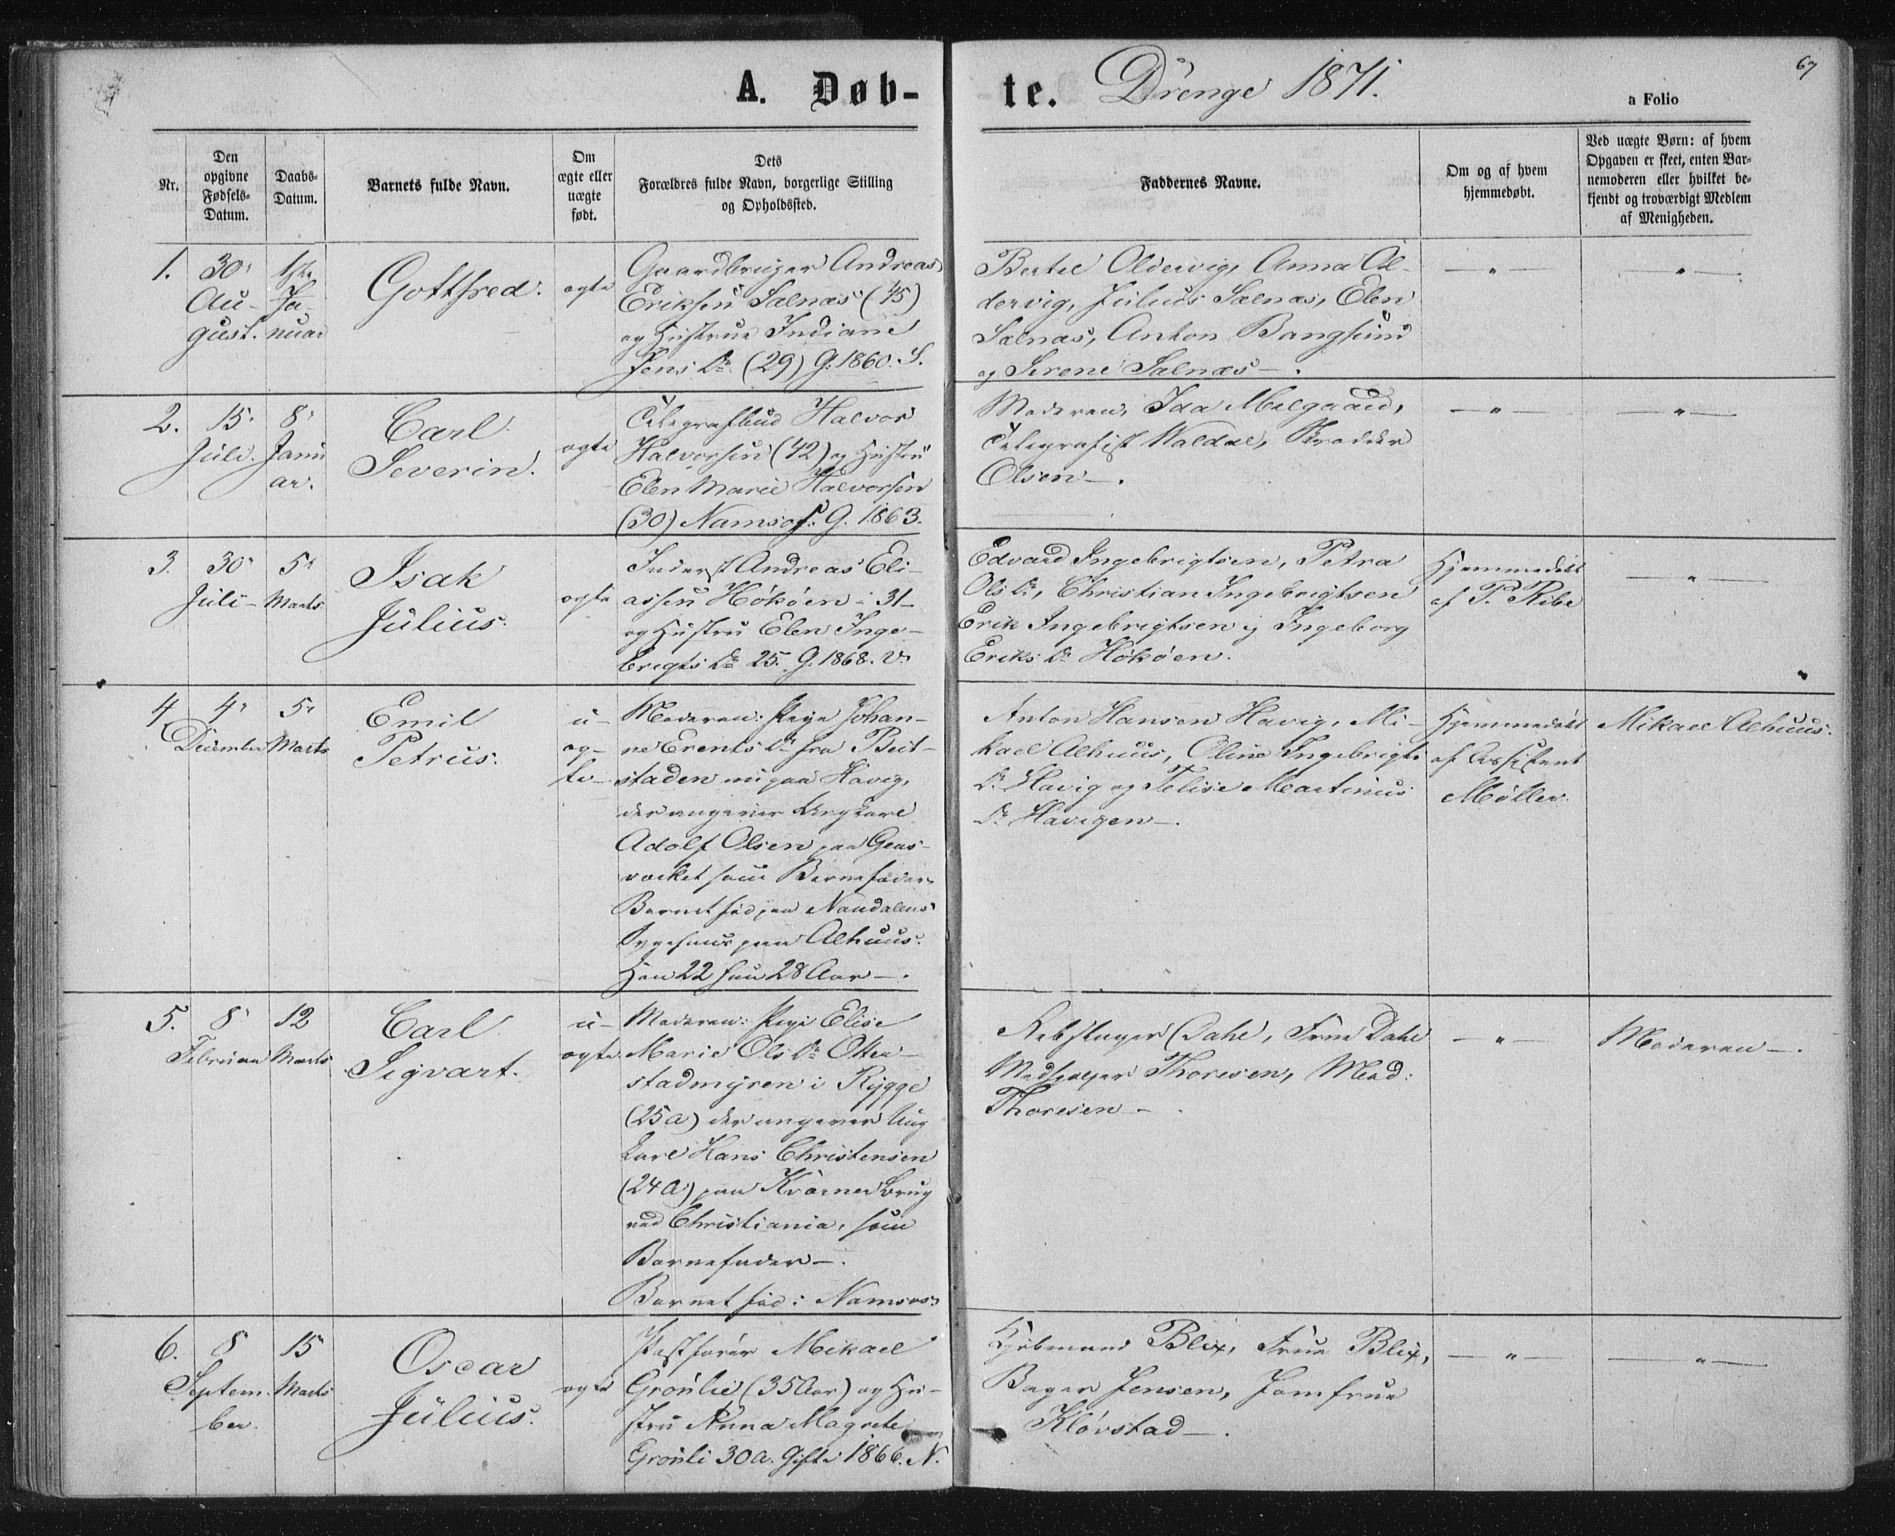 A. Døb-
te. Drenge 1871.
67
a Folio
Nr.
Den
opgivne
Fødsels-
Datum.
Daabs-
Datum.
Barnets fulde Navn.
Om
ægte eller
uægte
født.
Dets
Forældres fulde Navn, borgerlige Stilling
og Opholdssted.
Faddernes Navne.
Om og af hvem
hjemmedøbt.
Ved uægte Børn: af hvem
Opgaven er skeet, enten Bar-
nemoderen eller hvilket be-
kjendt og troværdigt Medlem
af Menigheden.
1.
30
Au-
gust.
1ste
Ja-
nuar
Gottfred.
ægte
Gaardbruger Andreas
Eriksen Salnæs (45)
og Hustrue Indiane
Jens Dr (29) G. 1860. S.
Bertel Oldervig, Anna Ol-
dervig, Julius Salnæs, Elen
Salnæs, Anton Bangsund
og Serene Salnæs-.
-"-
-"-
2.
15
Juli.
8
Janu
ar.
Carl
Severin.
ægte
Telegrafbud Halvor
Halvorsen (42) og Hustru
Elen Marie Halvorsen
(30) Namsos. G. 1863.
Moderen, Ida Melgaard,
Telegrafist Waldal,
Olsen-.
-"-
-"-
3.
30
Juli-
5
Marts
Isak
Julius.
ægte
Inderst Andreas Eli-
assen Hökøen - 31-
og Hustru Elen Inge-
brigts Dr 25. G. 1868. V.
Edvard Ingebrigtsen, Petra
Ols Dr, Christian Ingebrigtsen
Erik Ingebrigtsen og Ingeborg
Eriks Dr Hökøen.
Hjemmedøbt
af P. Ribe
-"-
4
4
December
5
Marts
Emil
Petrus.
u-
æg-
te-
Moderen: Pige Johan-
ne Erents Dr fra Beit-
staden nu paa Havig,
der angiver Ungkarl
Adolf Olsen paa
som Barnefader
Barnet fød paa Namdalens
Sygehuus paa Alhuus.
Hun 22 han 28 Aar-.
Anton Hansen Havig, Mi-
kael Alhuus, Oline Ingebrigts
Dr Havig og Felise Martinus
Dr Havigen-.
Hjemmedøbt
af Assistent
Møller.
Mikael Alhuus.
5.
8
Februar
12
Marts
Carl
Sigvart.
u-
ægte
Moderen: Pige Elise
Marie Ols Dr Otter-
stadmyren i Rygge
(25 a) der angiver Ung
karl Hans Christensen
(24 a) paa Kværner Brug
ved Christiania, som
Barnefader-.
Barnet fød i Namsos
Rebslager Dahl, Frue Dahl
Thoresen, Mad:
Thoresen-.
-"-
Moderen-.
6.
8
Septem
ber.
15
Marts
Oscar
Julius.
ægte
Mikael
Grönlie (35 Aar) og Hu-
stru Anna Magrete
Grönli 30 a. Gifte 1866. N.
Kjøbmand Blix, Frue Blix,
Bager Jensen, Jomfrue
Kløvstad-.
-"-
-"-